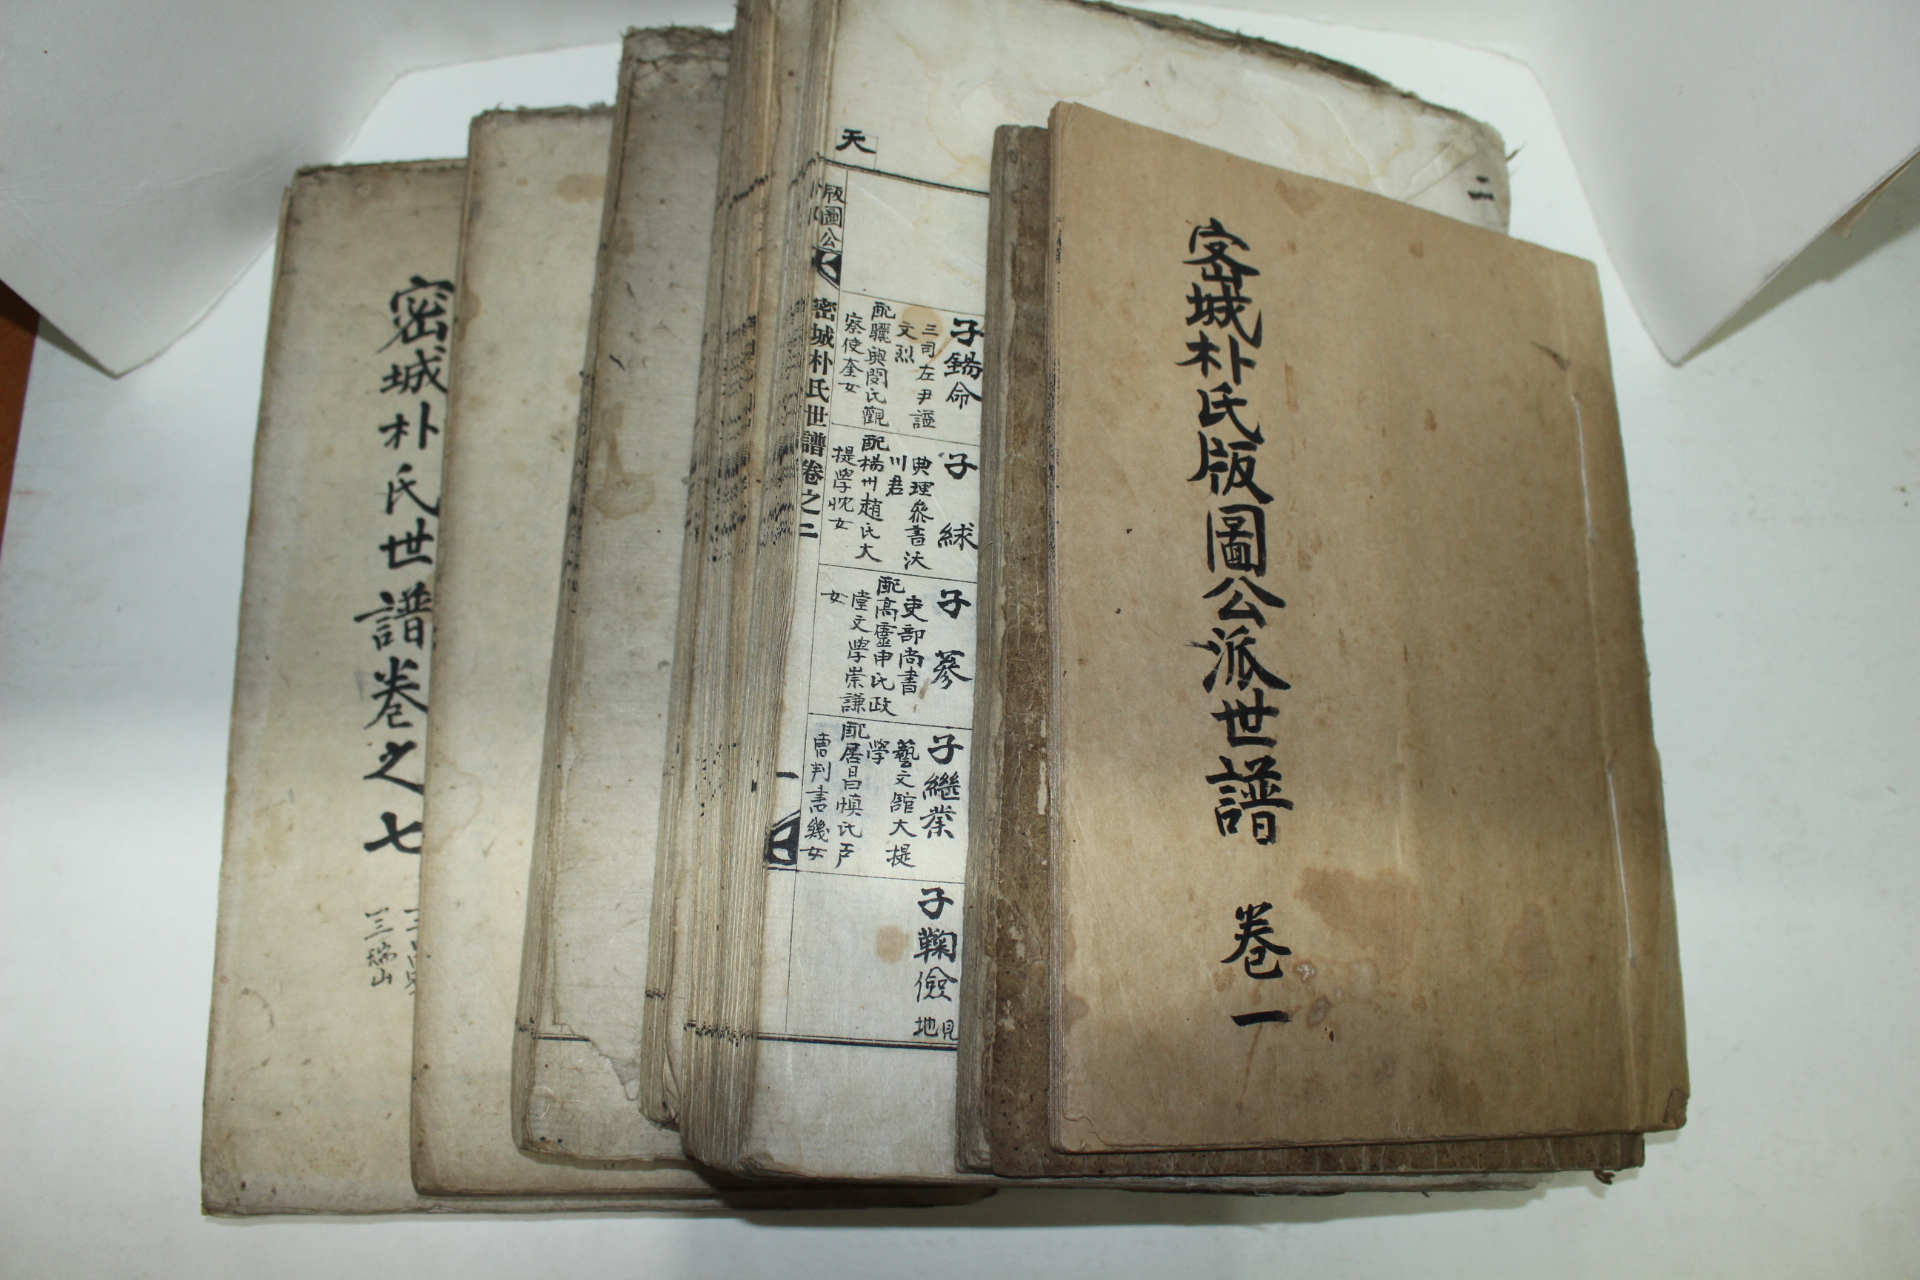 密城朴氏版圖公派世譜 卷一
二
天
版圖公
密城朴氏世譜卷之二
子鍚命
三司左尹諡
文烈
配驪興閔氏觀
察使奎女
子 絿
典理叅書沃
川君
配楊州趙氏大
提學忱女
子 蔘
吏部尚書
配高靈申氏政
堂文學崇謙
女
子繼業
藝文館大提
學
配居昌愼氏戶
曹判書幾女
子鞠儉
見
地
密城朴氏世譜卷之七
三瑞山